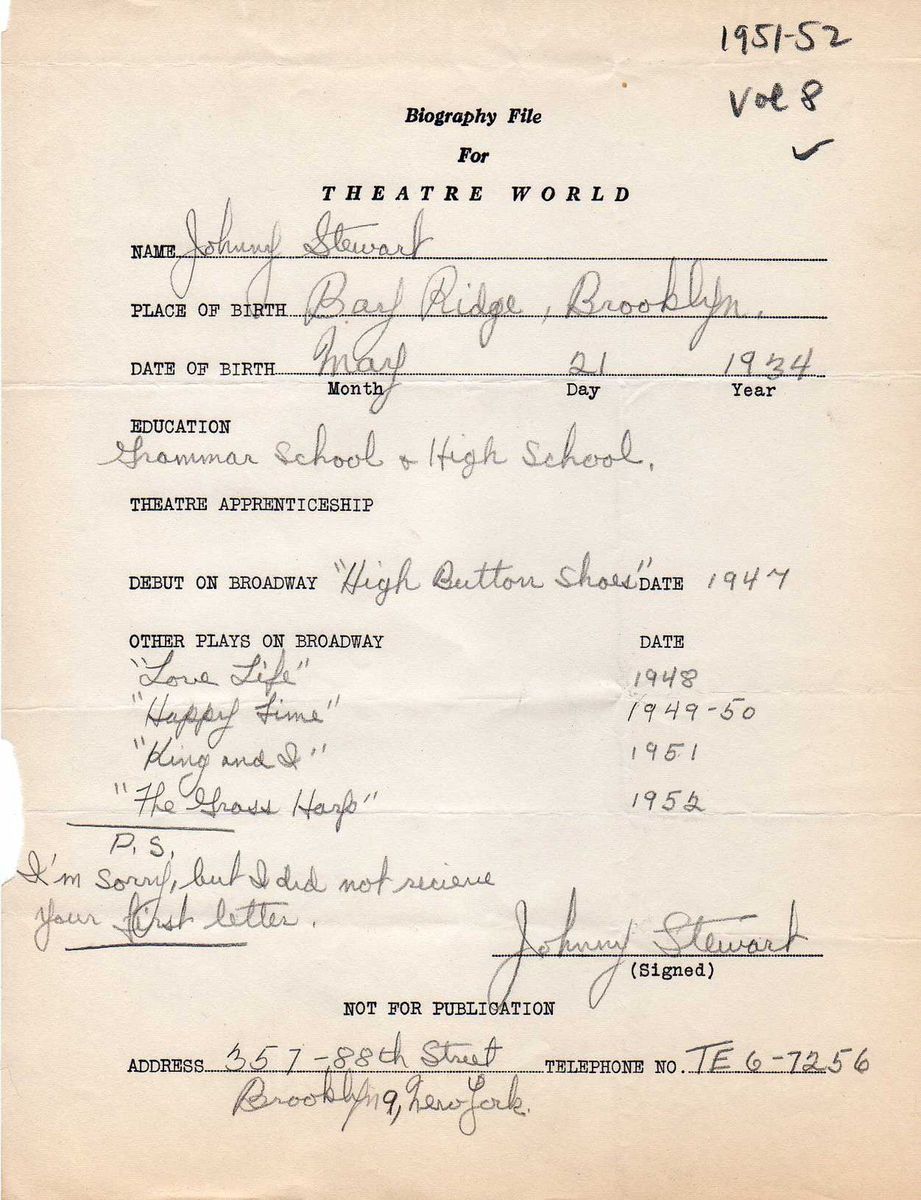 1951-52
Vol 8
✓
Biography File
For
THEATRE WORLD
NAME Johnny Stewart
PLACE OF BIRTH Bay Ridge, Brooklyn.
DATE OF BIRTH May 21 1934
Month Day Year
EDUCATION
Grammar School & High School.
THEATRE APPRENTICESHIP
DEBUT ON BROADWAY "High Button Shoes" DATE 1947
OTHER PLAYS ON BROADWAY DATE
"Love Life" 1948
"Happy Time" 1949-50
"King and I" 1951
"The Grass Harp" 1952
P.S.
I'm sorry, but I did not recieve
your first letter.
Johnny Stewart
(Signed)
NOT FOR PUBLICATION
ADDRESS 357-88th Street TELEPHONE NO. TE 6-7256
Brooklyn 9, New York.